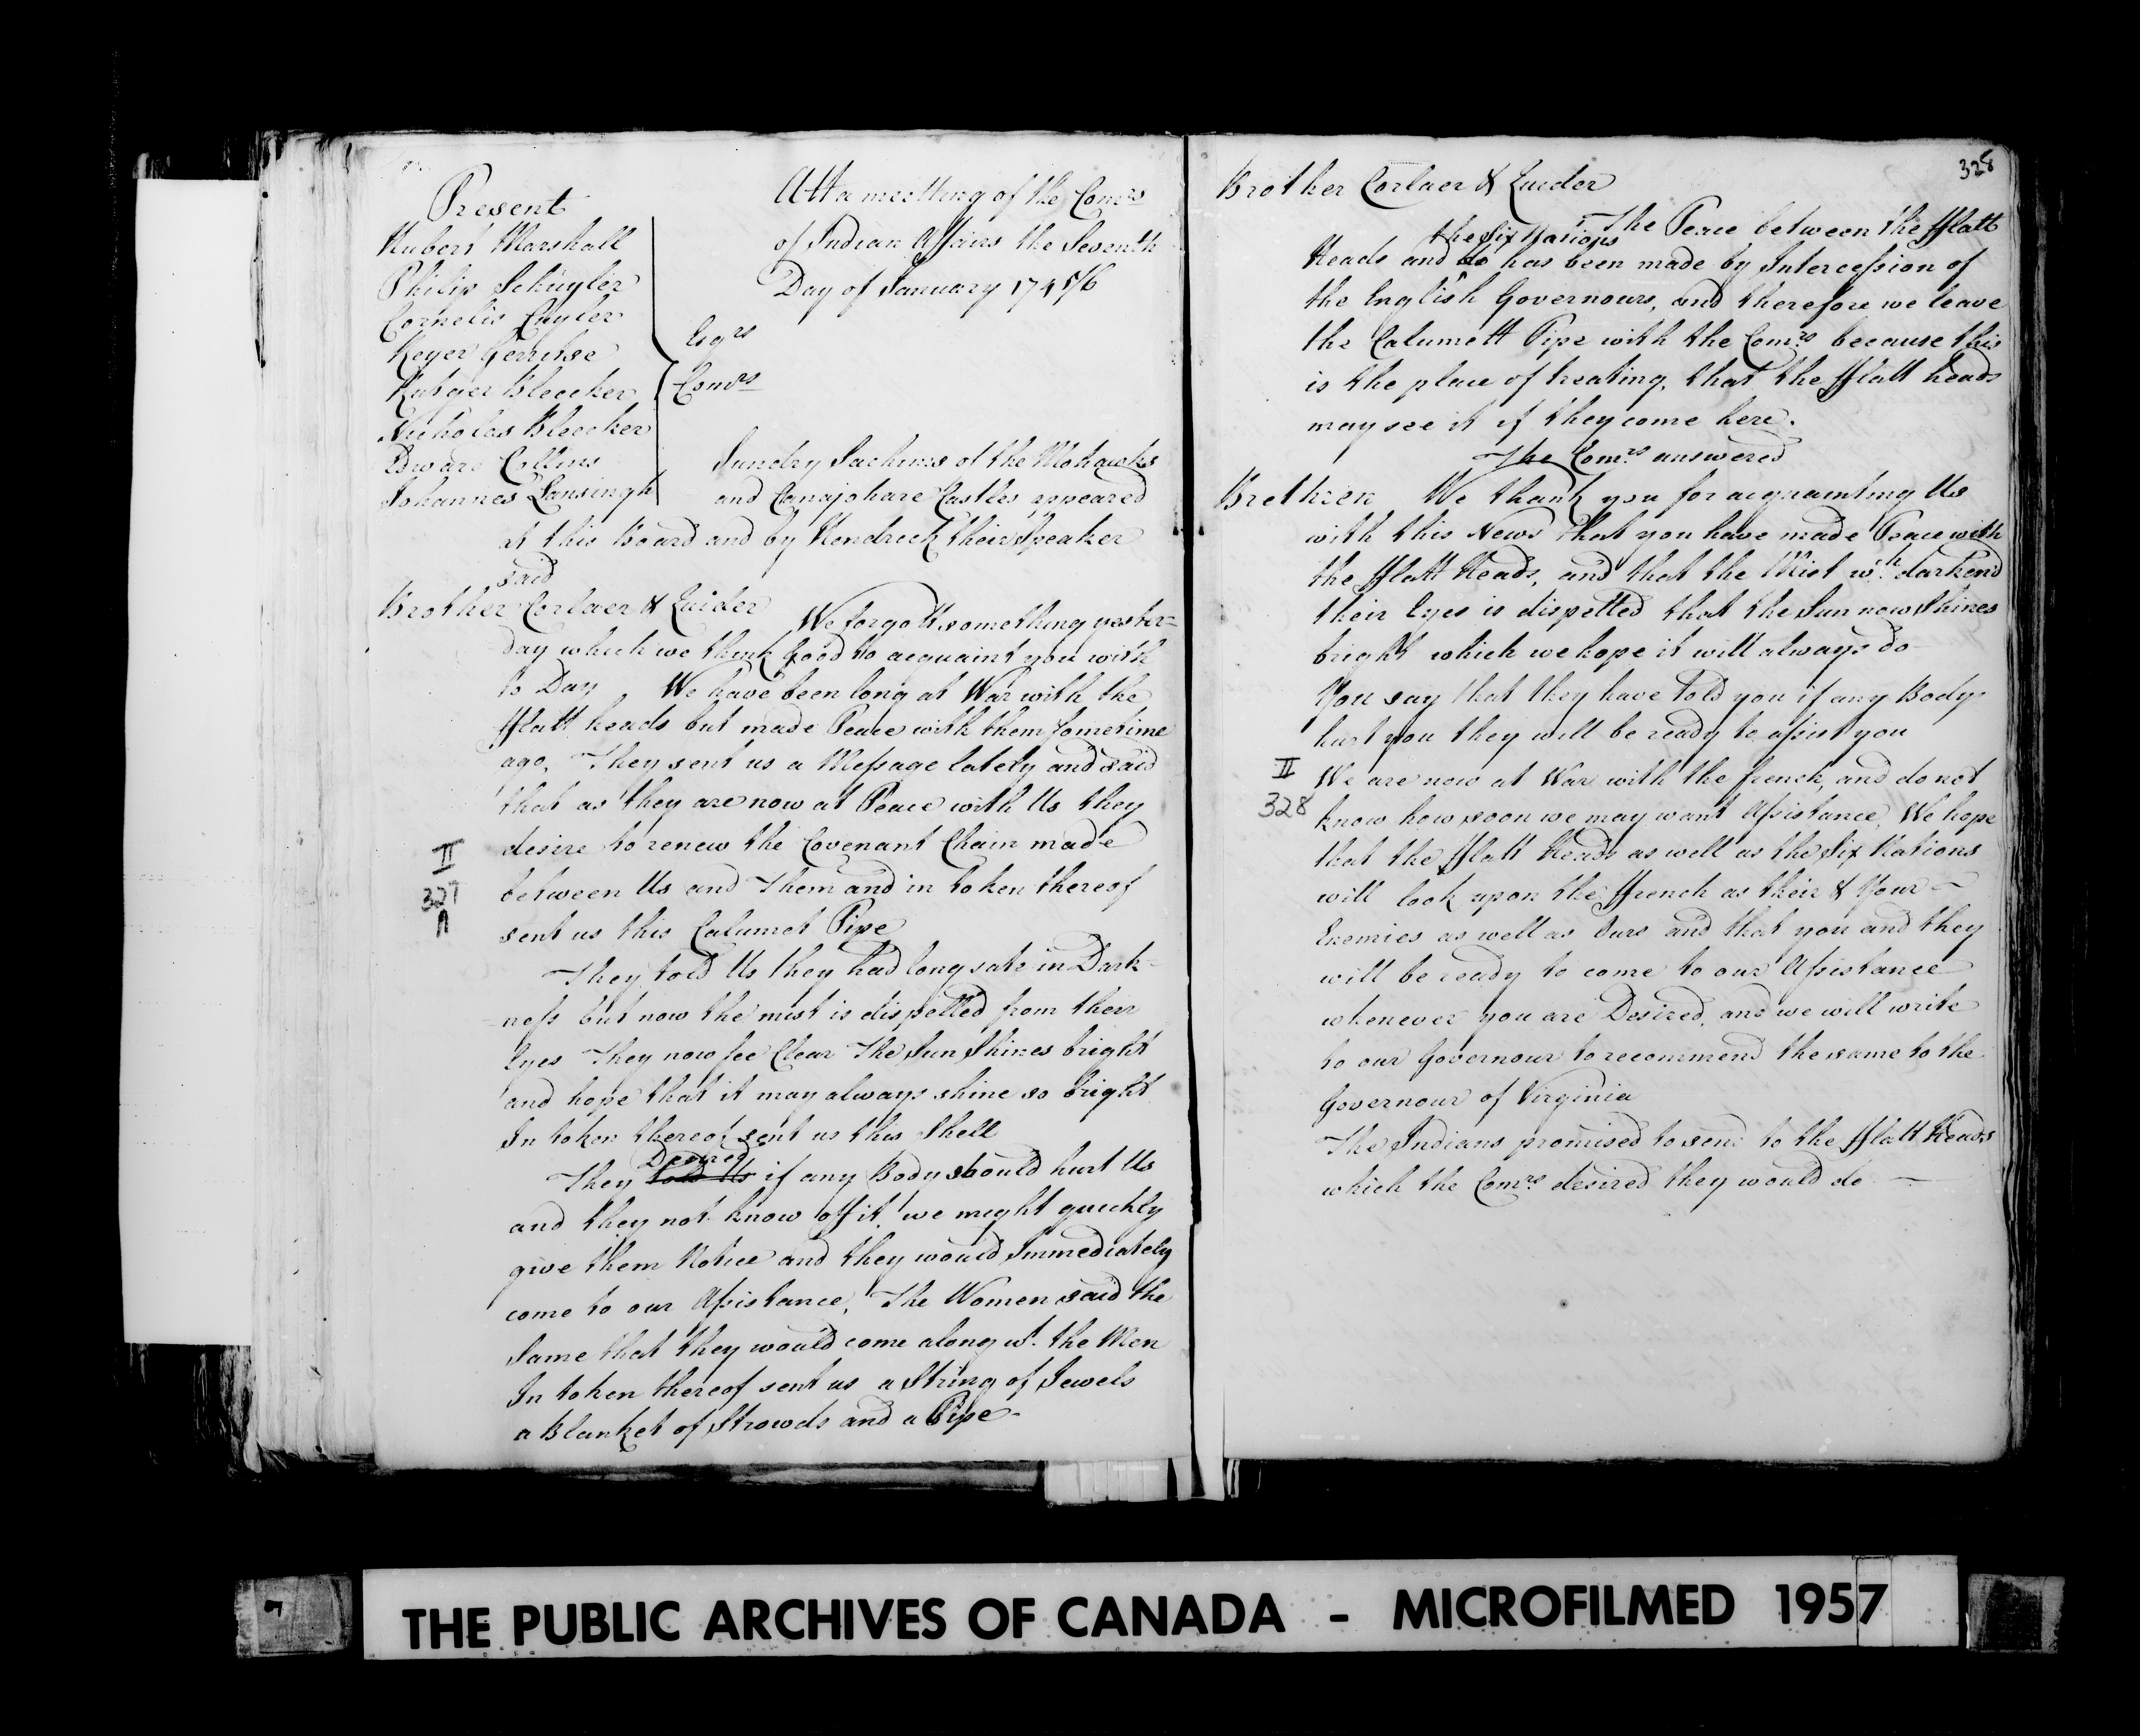 Present
Hubert Marshall
Philip Schuyler
Cornelis Cuyler
Reyer Gerritse
Rutger Bleecker
Nicholas Bleecker
Edward Collins
Johannes Lansingh
Esqrs
Comrs
Att a meetting of the Comrs
of Indian Affairs the Seventh
Day of January 1745/6
Sundry Sachims of the Mohawks
and Canajohare Castles appeared
at this Board and by Hendrick their Speaker
said
Brother Corlaer & Quider We forgott something yester=
day which we think good to acquaint you with
to Day We have been long at War with the
fflatt heads but made Peace with them Sometime
ago. They sent us a Message lately and said
that as they are now at Peace with Us they
desire to renew the Covenant Chain made
between Us and Them and in token thereof
sent us this Calumet Pipe
II
327
A
They told Us they had long sate in Dark-
ness but now the mist is dispelled from their
Eyes They now see Clear The Sun Shines bright
and hope that it may always shine so bright
In token thereof sent us this Shell
Desired
They told Us if any Body should hurt Us
and they not know off it, we might quickly
give them Notice and they would Immediately
come to our Assistance, The Women said the
same that they would come along wt. the Men
In token thereof sent us a String of Jewels
a Blanket of Strowds and a Pipe-
328
Brother Corlaer & Quider
The Peace between the fflatt
the Six Nations
Heads and do has been made by Intercession of
the English Governours, and therefore we leave
the Calumett Pipe with the Comrs because this
is the place of treating, that the fflatt heads
may see it if they come here.
The Comrs answered
Brethren We thank you for acquainting Us
with this News that you have made Peace with
the fflatt Heads, and that the Mist wch darkend
their Eyes is dispelled that the Sun now Shines
bright which we hope it will always do
You say that they have told you if any Body
hurt you they will be ready to assist you
II
328
We are now at War with the french, and do not
know how soon we may want Assistance, We hope
that the fflatt Heads as well as the Six Nations
will look upon the ffrench as their & Your
Enemies as well as Ours and that you and they
will be ready to come to our Assistance
whenever you are Desired, and we will write
to our Governour to recommend the same to the
Governour of Virginia
The Indians promised to send to the fflatt Heads
which the Comrs desired they would do
THE PUBLIC ARCHIVES OF CANADA - MICROFILMED 1957